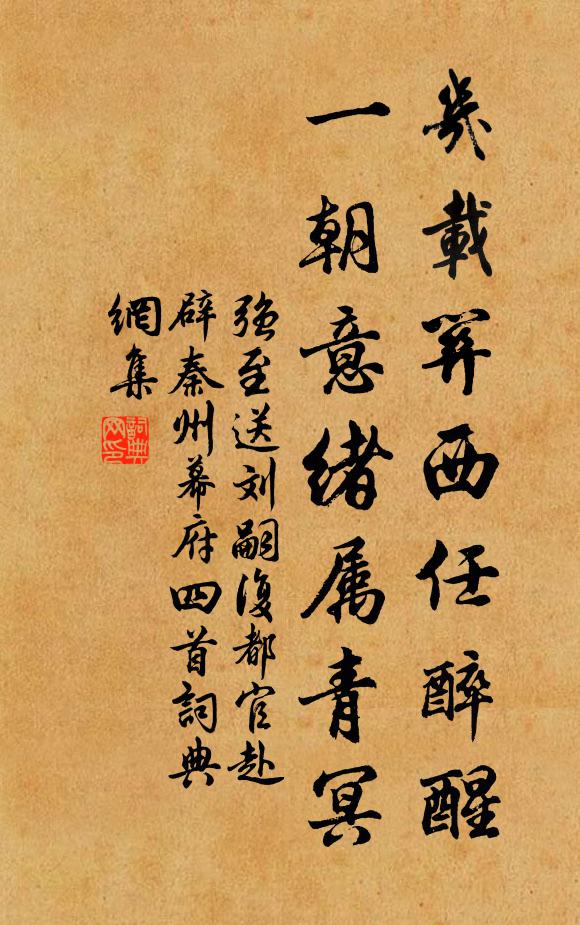 幾載笄西任醉醒
一朝意緒属青冥
强至送刘嗣復都官赴
辟秦州幕府四首詞典
網集
詞典
网印